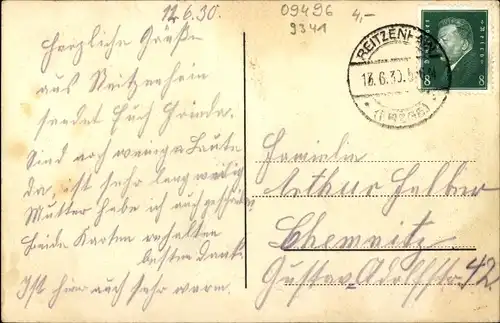 12.6.30.
09496
9341
4,-
Herzliche Grüße
aus Reitzenhein
sendet Euch Frieda.
Sind noch wenige Leute
da, ist sehr langweilig
Mutter habe ich auch geschrieben
beide Karten erhalten
besten Dank.
Ist hier auch sehr warm.
REITZENHAIN
13.6.30.
(ERZGEB)
Deutsches Reich
8 8
Familie
Arthur Halber
Chemnitz
Gustav-Adolfstr. 42